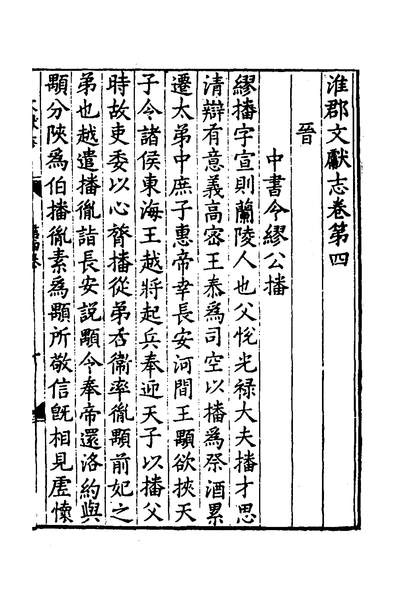 淮郡文獻志卷第四
晉
中書令繆公播
繆播字宣則蘭陵人也父恱光禄大夫播才思
清辯有意義高宻王泰爲司空以播爲祭酒累
遷太弟中庶子惠帝幸長安河間王顒欲挾天
子令諸侯東海王越將起兵奉迎天子以播父
時故吏委以心膂播從弟右衞率胤顒前妃之
弟也越遣播胤詣長安説顒令奉帝還洛約與
顒分陜爲伯播胤素爲顒所敬信旣相見虛懷